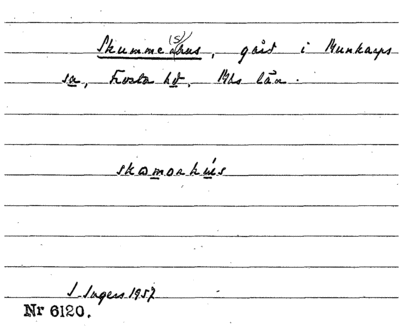 Skumme(s)hus, gård i Munkarps
sn, Frosta hd, Mhs län.
skomorhús
1957
Nr 6120.